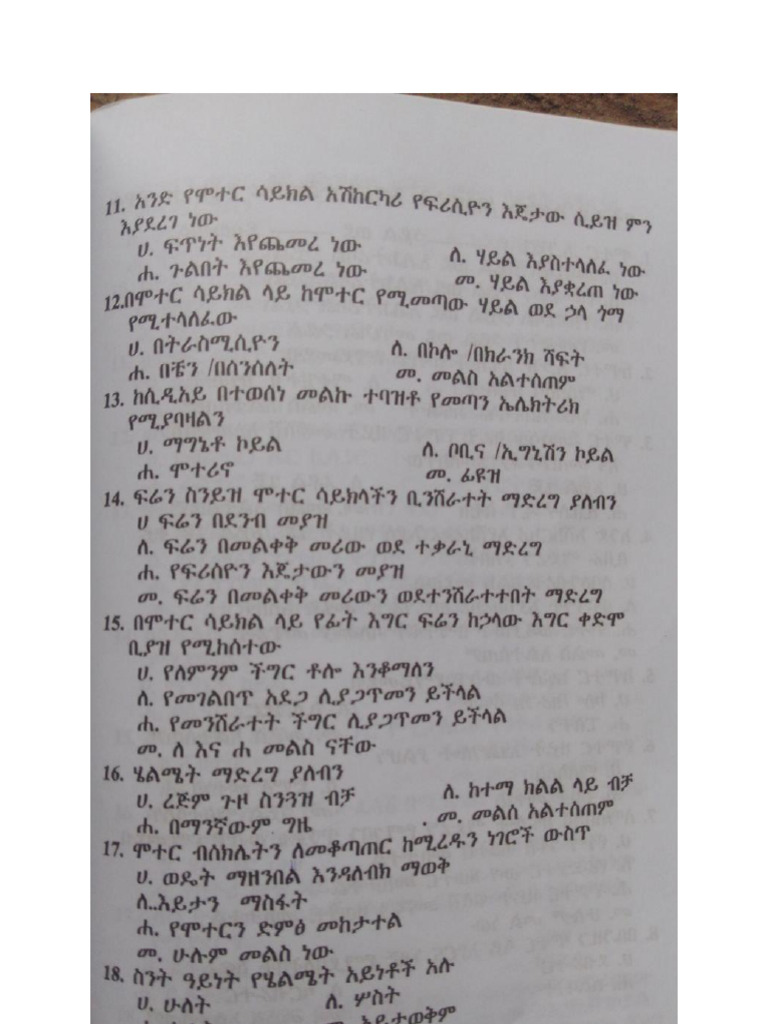 11. አንድ የሞተር ሳይክል አሽከርካሪ የፍሪሲዮን እጀታው ሲይዝ ምን
እያደረገ ነው
ሀ. ፍጥነት እየጨመረ ነው ለ. ሃይል እያስተላለፈ ነው
ሐ. ጉልበት እየጨመረ ነው መ. ሃይል እያቋረጠ ነው
12.በሞተር ሳይክል ላይ ከሞተር የሚመጣው ሃይል ወደ ኃላ ጎማ
የሚተላለፈው
ሀ. በትራስሚሲዮን ለ. በኮሎ /በክራንክ ሻፍት
ሐ. በቼን /በሰንሰለት መ. መልስ አልተሰጠም
13. ከሲዲአይ በተወሰነ መልኩ ተባዝቶ የመጣን ኤሌክትሪክ
የሚያባዛልን
ሀ. ማግኔቶ ኮይል ለ. ቦቢና /ኢግኒሽን ኮይል
ሐ. ሞተሪኖ መ. ፊዩዝ
14. ፍሬን ስንይዝ ሞተር ሳይክላችን ቢንሸራተት ማድረግ ያለብን
ሀ ፍሬን በደንብ መያዝ
ለ. ፍሬን በመልቀቅ መሪው ወደ ተቃራኒ ማድረግ
ሐ. የፍሪሰዮን እጀታውን መያዝ
መ. ፍሬን በመልቀቅ መሪውን ወደተንሸራተተበት ማድረግ
15. በሞተር ሳይክል ላይ የፊት እግር ፍሬን ከኃላው እግር ቀድሞ
ቢያዝ የሚከሰተው
ሀ. የለምንም ችግር ቶሎ እንቆማለን
ለ. የመገልበጥ አደጋ ሊያጋጥመን ይችላል
ሐ. የመንሸራተት ችግር ሊያጋጥመን ይችላል
መ. ለ እና ሐ መልስ ናቸው
16. ሄልሜት ማድረግ ያለብን
ሀ. ረጅም ጉዞ ስንጓዝ ብቻ ለ. ከተማ ክልል ላይ ብቻ
ሐ. በማንኛውም ግዜ መ. መልሰ አልተሰጠም
17. ሞተር ብስክሌትን ለመቆጣጠር ከሚረዱን ነገሮች ውስጥ
ሀ. ወዴት ማዘንበል እንዳለብክ ማወቅ
ለ..እይታን ማስፋት
ሐ. የሞተርን ድምፅ መከታተል
መ. ሁሉም መልስ ነው
18. ስንት ዓይነት የሄልሜት አይነቶች አሉ
ሀ. ሁለት ለ. ሦስት
መ. አይታወቅም